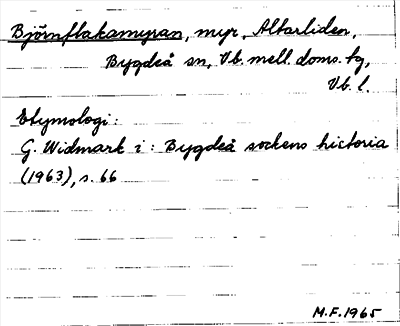 Björnflakamyran, myr, Altarliden,
Bygdeå sn, Vb. mell. doms. tg,
Vb. l.
Etymologi:
G. Widmark i: Bygdeå sockens historia
(1963), s. 66
M.F. 1965